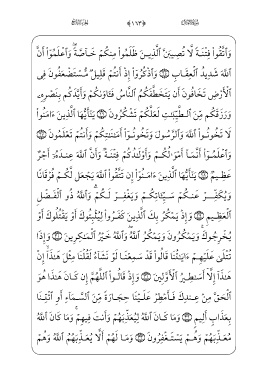 وَاتَّقُوا فِتْنَةً لَّا تُصِيبَنَّ الَّذِينَ ظَلَمُوا مِنكُمْ خَاصَّةً وَاعْلَمُوا أَنَّ
اللَّهَ شَدِيدُ الْعِقَابِ ﴿٢٥﴾ وَاذْكُرُوا إِذْ أَنتُمْ قَلِيلٌ مُّسْتَضْعَفُونَ فِي
الْأَرْضِ تَخَافُونَ أَن يَتَخَطَّفَكُمُ النَّاسُ فَآوَاكُمْ وَأَيَّدَكُم بِنَصْرِهِ
وَرَزَقَكُم مِّنَ الطَّيِّبَاتِ لَعَلَّكُمْ تَشْكُرُونَ ﴿٢٦﴾ يَا أَيُّهَا الَّذِينَ آمَنُوا
لَا تَخُونُوا اللَّهَ وَالرَّسُولَ وَتَخُونُوا أَمَانَاتِكُمْ وَأَنتُمْ تَعْلَمُونَ ﴿٢٧﴾
وَاعْلَمُوا أَنَّمَا أَمْوَالُكُمْ وَأَوْلَادُكُمْ فِتْنَةٌ وَأَنَّ اللَّهَ عِندَهُ أَجْرٌ
عَظِيمٌ ﴿٢٨﴾ يَا أَيُّهَا الَّذِينَ آمَنُوا إِن تَتَّقُوا اللَّهَ يَجْعَل لَّكُمْ فُرْقَانًا
وَيُكَفِّرْ عَنكُمْ سَيِّئَاتِكُمْ وَيَغْفِرْ لَكُمْ وَاللَّهُ ذُو الْفَضْلِ
الْعَظِيمِ ﴿٢٩﴾ وَإِذْ يَمْكُرُ بِكَ الَّذِينَ كَفَرُوا لِيُثْبِتُوكَ أَوْ يَقْتُلُوكَ أَوْ
يُخْرِجُوكَ وَيَمْكُرُونَ وَيَمْكُرُ اللَّهُ وَاللَّهُ خَيْرُ الْمَاكِرِينَ ﴿٣٠﴾ وَإِذَا
تُتْلَىٰ عَلَيْهِمْ آيَاتُنَا قَالُوا قَدْ سَمِعْنَا لَوْ نَشَاءُ لَقُلْنَا مِثْلَ هَٰذَا إِنْ
هَٰذَا إِلَّا أَسَاطِيرُ الْأَوَّلِينَ ﴿٣١﴾ وَإِذْ قَالُوا اللَّهُمَّ إِن كَانَ هَٰذَا هُوَ
الْحَقَّ مِنْ عِندِكَ فَأَمْطِرْ عَلَيْنَا حِجَارَةً مِّنَ السَّمَاءِ أَوِ ائْتِنَا
بِعَذَابٍ أَلِيمٍ ﴿٣٢﴾ وَمَا كَانَ اللَّهُ لِيُعَذِّبَهُمْ وَأَنتَ فِيهِمْ وَمَا كَانَ اللَّهُ
مُعَذِّبَهُمْ وَهُمْ يَسْتَغْفِرُونَ ﴿٣٣﴾ وَمَا لَهُمْ أَلَّا يُعَذِّبَهُمُ اللَّهُ وَهُمْ